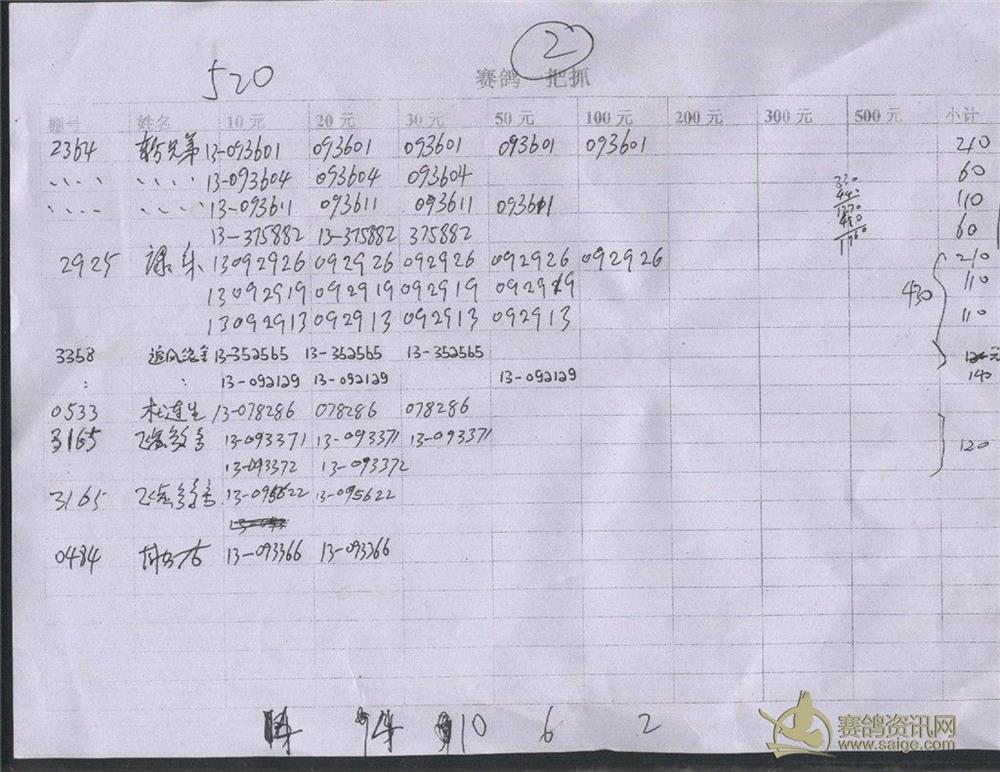 2
520
赛鸽一把抓
棚号 姓名 10元 20元 30元 50元 100元 200元 300元 500元 小计
2364 兄弟 13-093601 093601 093601 093601 093601 210
13-093604 093604 093604 60
13-093611 093611 093611 093611 110
13-375882 13-375882 375882 60
2925 13092926 092926 092926 092926 092926 210
13092919 092919 092919 092919 110
430
13092913 092913 092913 092913 110
3358 13-352565 13-352565 13-352565
: : 13-092129 13-092129 13-092129 140
0533 杜连生 13-078286 078286 078286
3165 13-093371 13-093371 13-093371 120
13-093372 13-093372
3165 13-095622 13-095622
0484 13-093366 13-093366
14 10 6 2
赛鸽资讯网
www.saige.com